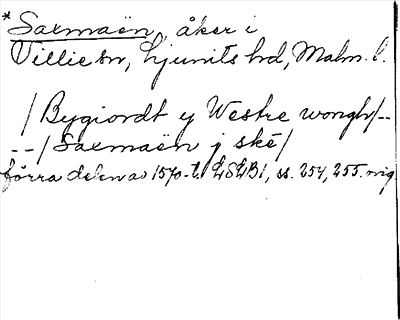 *Saxmaën, åker i
Villie sn, Ljunits hd, Malm. l.
/Bygiordt y Westre wongh/--
--/Saxmaën j ské/
förra delen av 1570-t. LSLB1, ss. 254, 255. orig